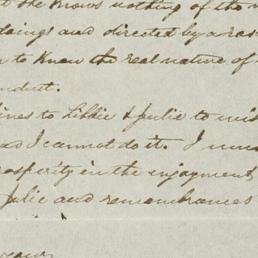 she knows nothing of the
and directed by a
to know the real nature of
lines to Libbie & Julie to
I cannot do it. I
prosperity in the enjoyment
Julie and remembrances